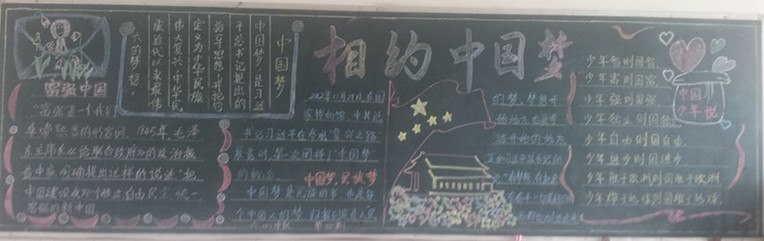 相约中国梦
富强中国
"富强是一个我们
非常熟悉的形容词，1945年毛泽
东主席在《论联合政府》的政治报
告中就明确提出过这样的说法"把
中国建设成为个独立自由民主统一
富强的新中国
中国梦
中国梦，是习近
平总书记提出的
指导思想，并将其
定义为中华民族
伟大复兴，中华民
族近代以来最伟
大的梦想。
2012年11月29日，在国
家博物馆，中共总
书记习近平在参观"复兴之路"
展览时，第一次阐释了"中国梦"
的概论
中国梦民族梦
中国梦是民族的梦，也是每
个中国人的梦
的梦，梦想开
中国
少年说
少年智则国智，
少年富则国富，
少年强则国强，
少年独立则国独立
少年自由则国自由，
少年进步则国进步，
少年胜于欧洲则国胜于欧洲
少年雄于地球则国雄于地球